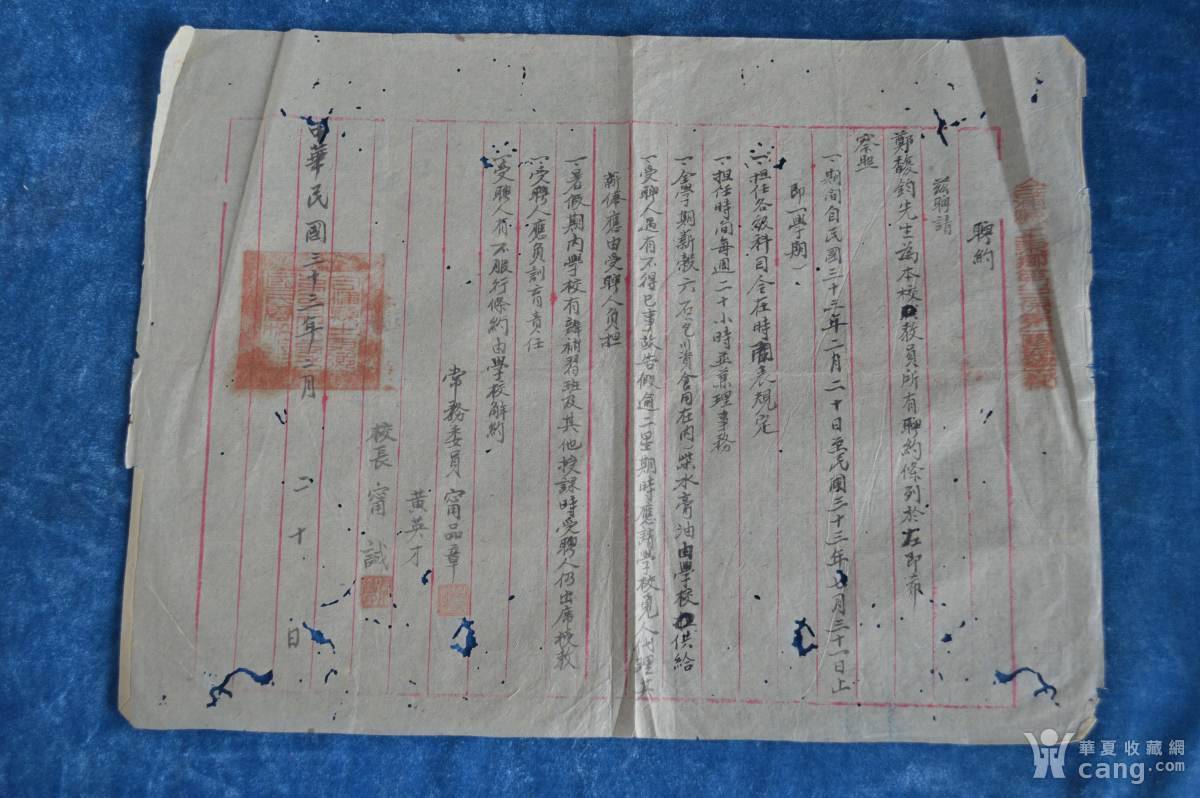 聘約
茲聘請
鄭馥鈞先生為本校教員所有聘約條列於左即希
察照
一、期间自民國三十三年二月二十日至民國三十三年七月三十一日止
即一學期）
一、担任各級科目令在時間表規定
一、担任時间每週二十小時並兼理事務
一、全學期薪穀六石 食用在内）柴水膏油由學校供給
一、受聘人遇有不得已事故告假逾二星期時應請學校覓人代理其
薪俸應由受聘人負担
一、暑假期内學校有 補習班及其他授課時受聘人仍出席授教
一、受聘人應負訓育責任
一、受聘人有不服行條約由學校解約
常務委員 甯品章
黃英才
校長 甯 誠
中華民國三十三年二月 二十日
華夏收藏網
cang.com